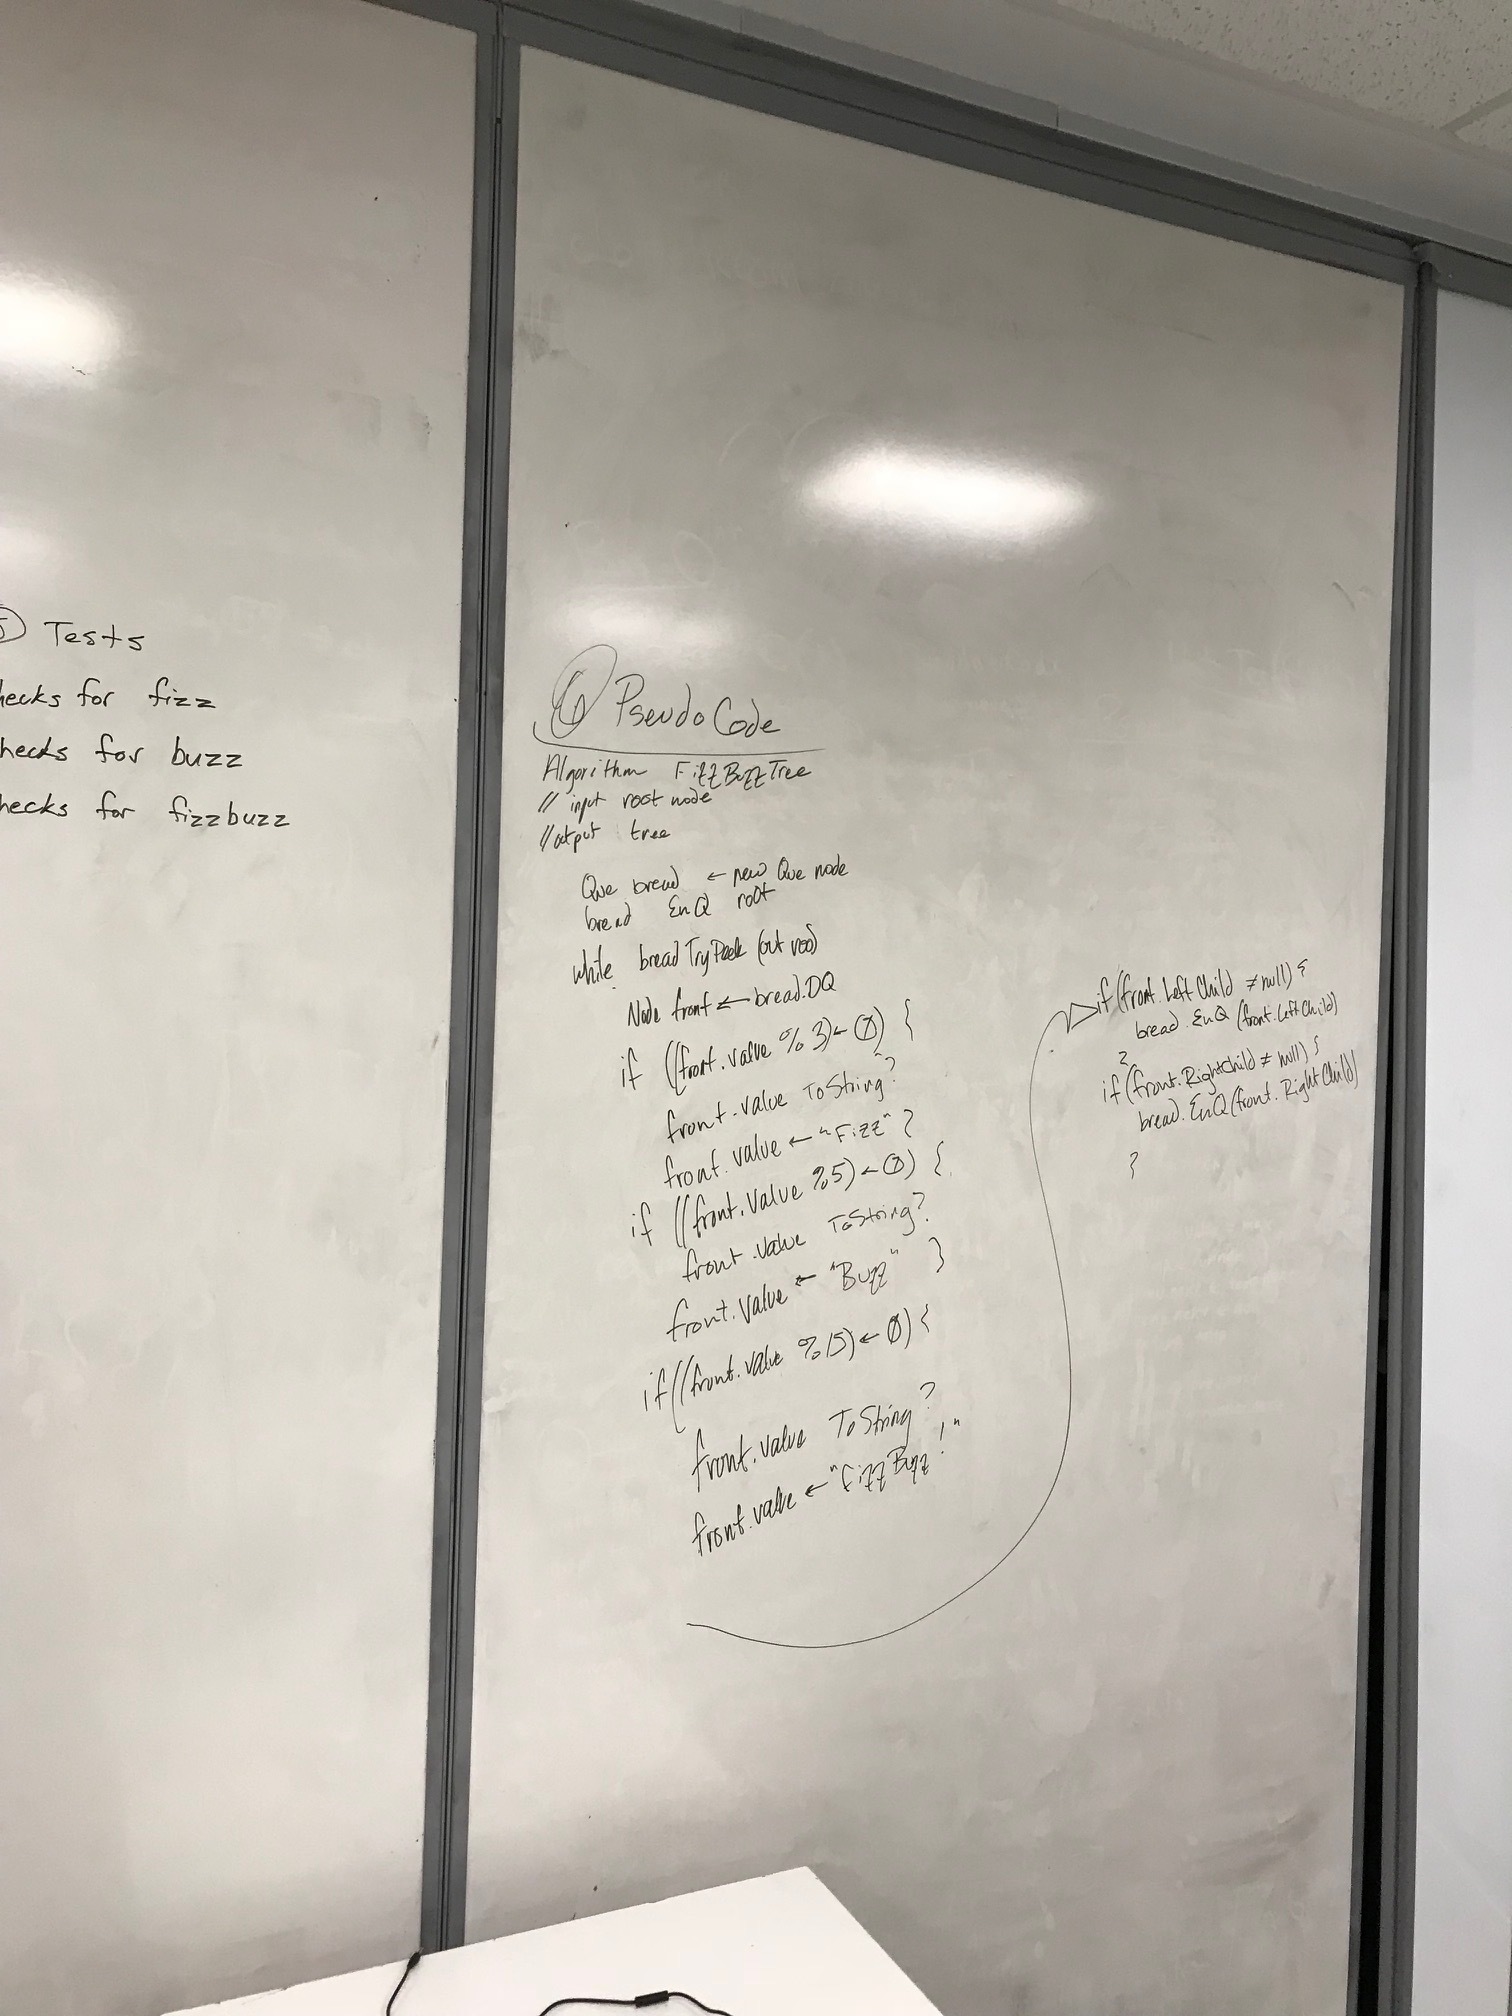 5 Tests
hecks for fizz
hecks for buzz
hecks for fizzbuzz
6 PseudoCode
Algorithm FizzBuzzTree
// input root node
// output tree
Que bread ← new Que node
bread EnQ root
while bread TryPeek (out
Node front ← bread.DQ
if ((front.value % 3) ← 0) {
front.value ToString?
front.value ← "Fizz" }
if ((front.value %5) ← 0) {
front.value ToString?
front.value ← "Buzz" }
if ((front.value % 15) ← 0) {
front.value ToString?
front.value ← "FizzBuzz!"
if (front.LeftChild ≠ null) {
bread.EnQ (front.LeftChild)
}
if (front.RightChild ≠ null) {
bread.EnQ (front.RightChild)
}